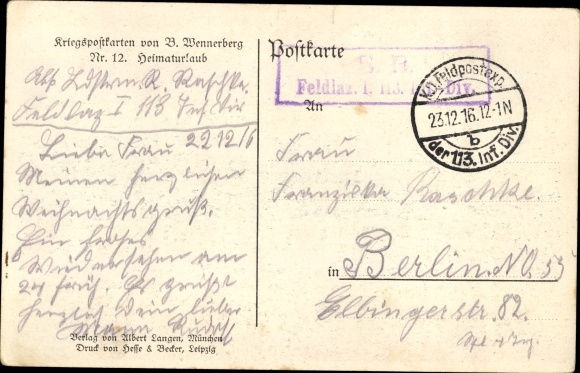 Kriegspostkarten von B. Wennerberg
Nr. 12. Heimaturlaub
Abs. Ldstrm. R. Raschke.
Feldlaz I 113 Inf Div
22 12/6
Liebe Frau
Meinen herzlichen
Weihnachtsgruß.
Ein frohes
Wiedersehen am
früh. Es grüßt
herzlich Dein lieber
Mann Rudolf
Verlag von Albert Langen, München
Druck von Hesse & Becker, Leipzig
Postkarte
S. B.
Feldlaz. 1. 113. Inf. Div.
K.D. Feldpostexp.
23.12.16.12-1N
b
der 113. Inf. Div.
An
Frau
Franziska Raschke.
in Berlin NO. 55
Elbingerstr. 82.